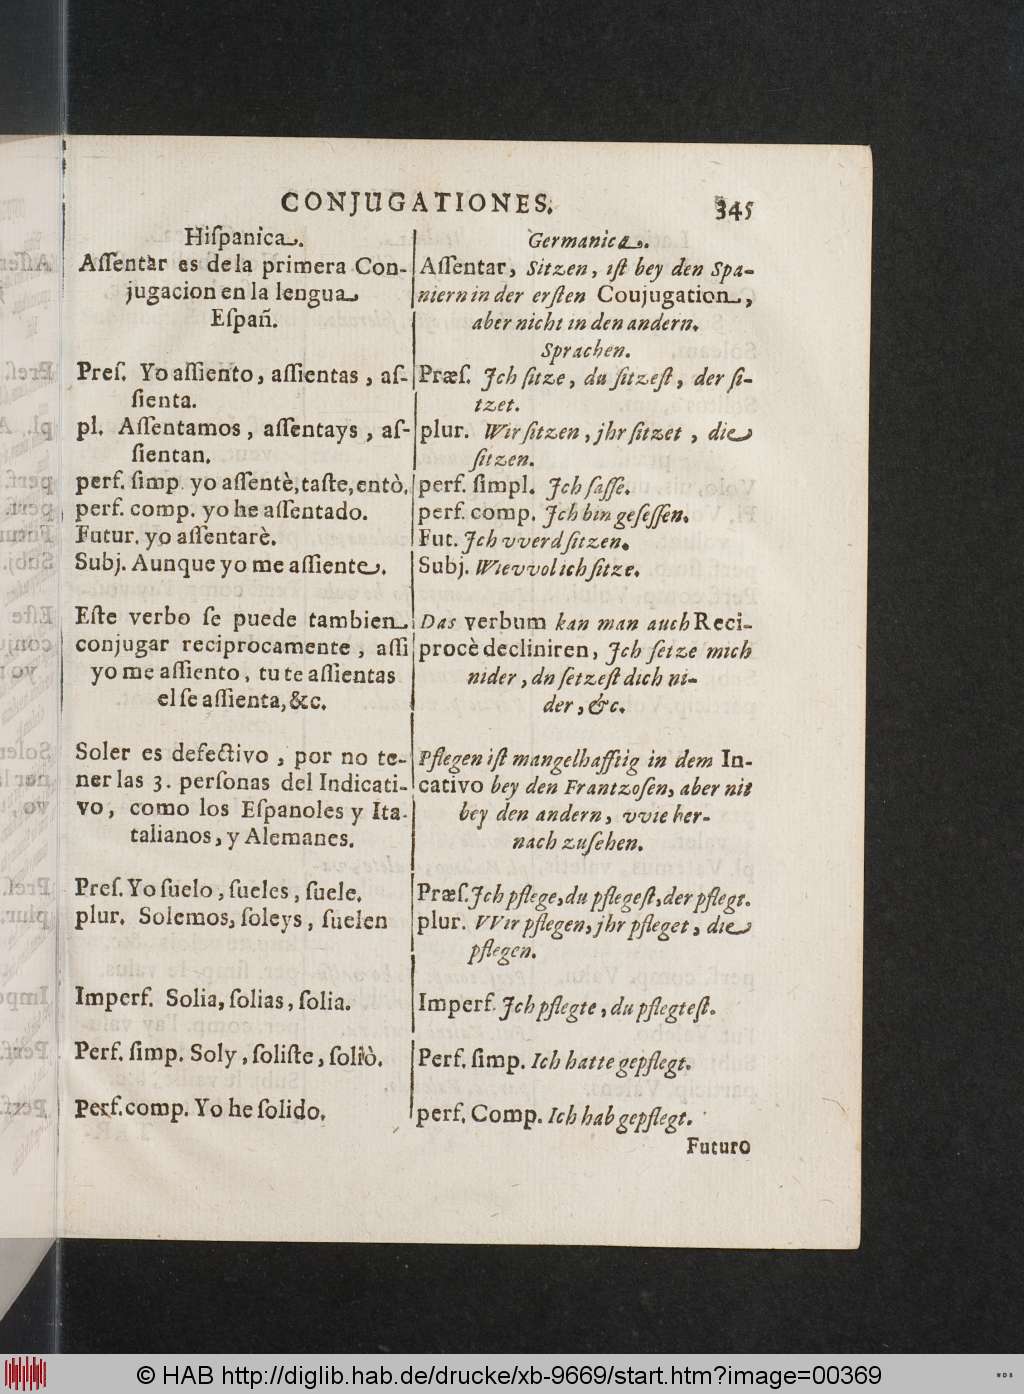 CONJUGATIONES. 345
Hiſpanica.
Aſſentàr es de la primera Con-
jugacion en la lengua
Eſpañ.
Preſ. Yo aſſiento, aſſientas, aſ-
ſienta.
pl. Aſſentamos, aſſentays, aſ-
ſientan.
perf. ſimp. yo aſſentè, taſte, entò.
perf. comp. yo he aſſentado.
Futur. yo aſſentarè.
Subj. Aunque yo me aſſiente.
Eſte verbo ſe puede tambien
conjugar reciprocamente, aſſi
yo me aſſiento, tu te aſſientas
el ſe aſſienta, &c.
Soler es defectivo, por no te-
ner las 3. perſonas del Indicati-
vo, como los Eſpanoles y Ita-
talianos, y Alemanes.
Preſ. Yo ſuelo, ſueles, ſuele.
plur. Solemos, ſoleys, ſuelen
Imperf. Solia, ſolias, ſolia.
Perf. ſimp. Soly, ſoliſte, ſoliò.
Perf. comp. Yo he ſolido.
Germanica.
Aſſentar, Sitzen, iſt bey den Spa-
niern in der erſten Coujugation,
aber nicht in den andern.
Sprachen.
Præſ. Jch ſitze, du ſitzeſt, der ſi-
tzet.
plur. Wir ſitzen, jhr ſitzet, die
ſitzen.
perf. ſimpl. Jch ſaſſe.
perf. comp. Jch bin geſeſſen.
Fut. Jch vverd ſitzen.
Subj. Wievvol ich ſitze.
Das verbum kan man auch Reci-
procè decliniren, Jch ſetze mich
nider, dn ſetzeſt dich ni-
der, &c.
Pflegen iſt mangelhafftig in dem In-
cativo bey den Frantzoſen, aber nit
bey den andern, vvie her-
nach zuſehen.
Præſ. Jch pflege, du pflegeſt, der pflegt.
plur. VVir pflegen, jhr pfleget, die
pflegen.
Imperf. Jch pflegte, du pflegteſt.
Perf. ſimp. Ich hatte gepflegt.
perf. Comp. Ich hab gepflegt.
Futuro
© HAB http://diglib.hab.de/drucke/xb-9669/start.htm?image=00369